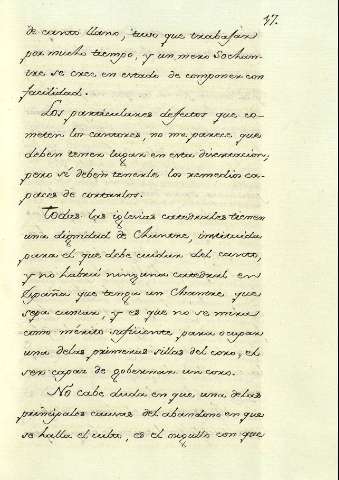 47.
de canto llano, tuvo que trabajar
por mucho tiempo, y un mero Sochan-
tre se cree en estado de componer con
facilidad.
Los particulares defectos que co-
meten los cantores, no me parece que
deben tener lugar en esta disertacion;
pero sí deben tenerle los remedios ca-
paces de cortarlos.
Todas las iglesias catedrales tienen
una dignidad de Chantre, instituida
para el que debe cuidar del canto,
y no habrá ninguna catedral en
España que tenga un Chantre que
sepa cantar, y es que no se mira
como mérito suficiente para ocupar
una delas primeras sillas del coro, el
ser capaz de gobernar un coro.
No cabe duda en que una delas
principales causas del abandono en que
se halla el culto, es el orgullo con que